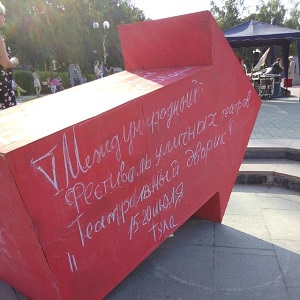 V Международный
Фестиваль уличных театров
"Театральный дворик"
15-20 июля
Тула